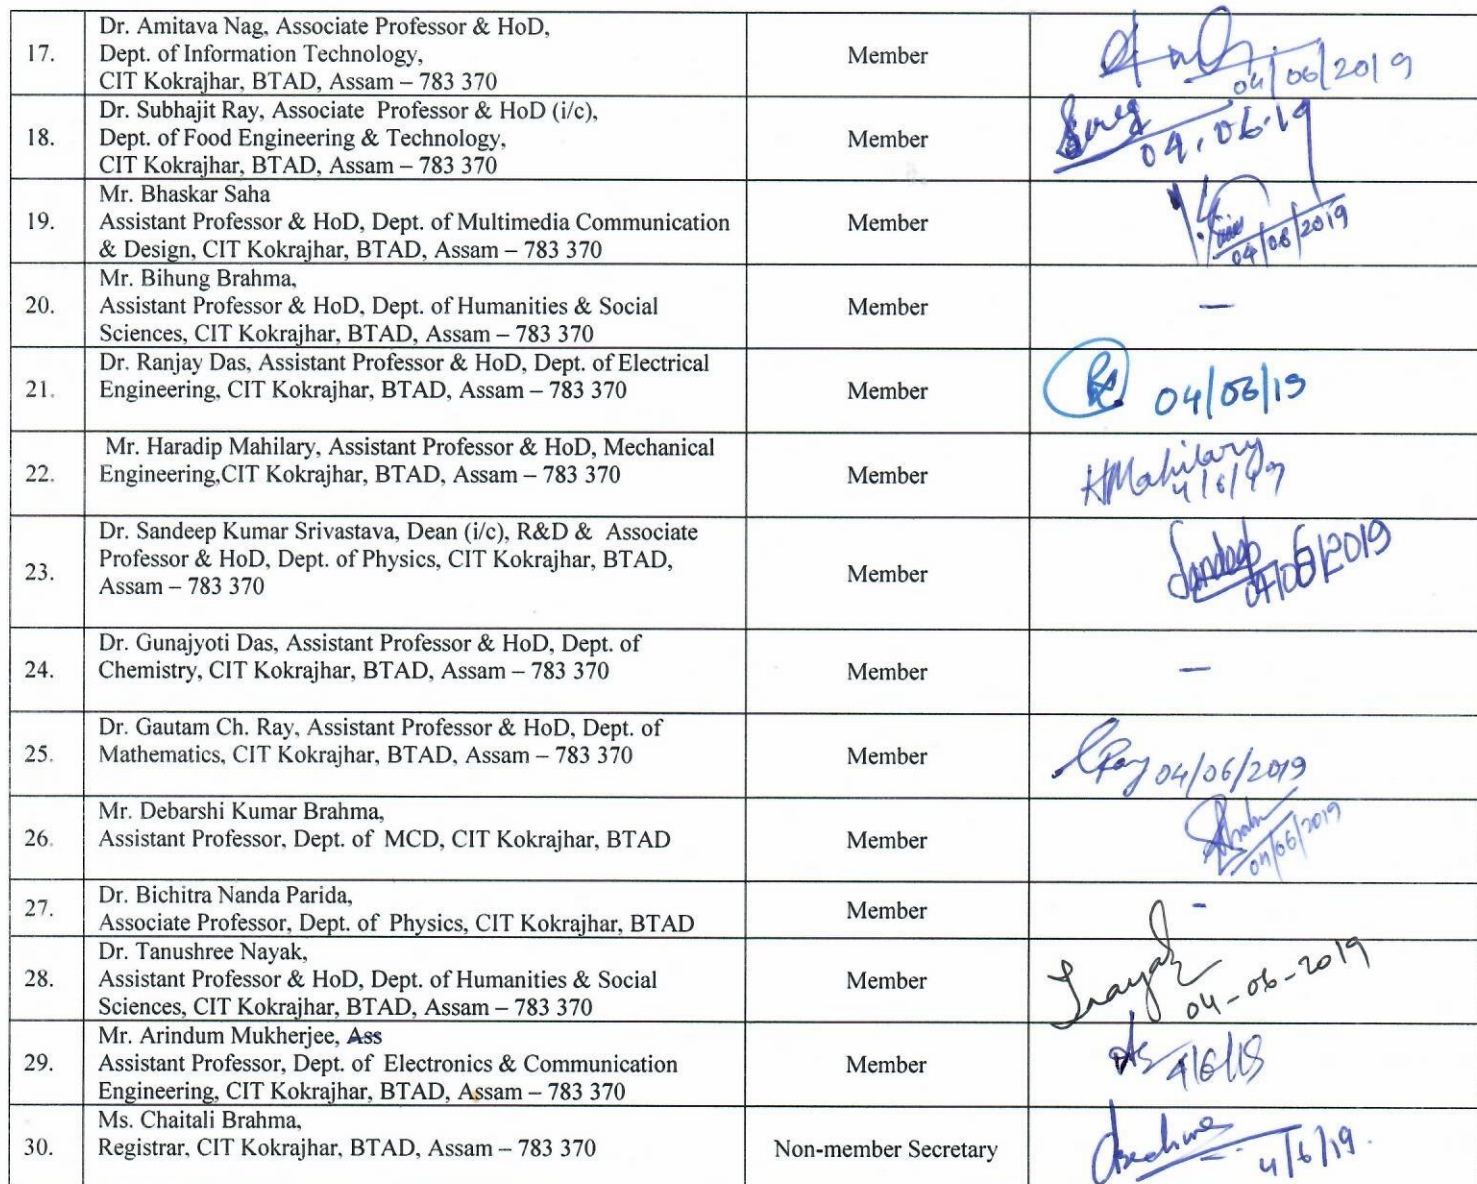 17.
Dr. Amitava Nag, Associate Professor & HoD,
Dept. of Information Technology,
CIT Kokrajhar, BTAD, Assam – 783 370
Member
04/06/2019
18.
Dr. Subhajit Ray, Associate Professor & HoD (i/c),
Dept. of Food Engineering & Technology,
CIT Kokrajhar, BTAD, Assam – 783 370
Member
04.06.19
19.
Mr. Bhaskar Saha
Assistant Professor & HoD, Dept. of Multimedia Communication
& Design, CIT Kokrajhar, BTAD, Assam – 783 370
Member
04/06/2019
20.
Mr. Bihung Brahma,
Assistant Professor & HoD, Dept. of Humanities & Social
Sciences, CIT Kokrajhar, BTAD, Assam – 783 370
Member
–
21.
Dr. Ranjay Das, Assistant Professor & HoD, Dept. of Electrical
Engineering, CIT Kokrajhar, BTAD, Assam – 783 370
Member
04/06/19
22.
Mr. Haradip Mahilary, Assistant Professor & HoD, Mechanical
Engineering,CIT Kokrajhar, BTAD, Assam – 783 370
Member
HMahilary
4/6/19
23.
Dr. Sandeep Kumar Srivastava, Dean (i/c), R&D & Associate
Professor & HoD, Dept. of Physics, CIT Kokrajhar, BTAD,
Assam – 783 370
Member
Sandeep
24.
Dr. Gunajyoti Das, Assistant Professor & HoD, Dept. of
Chemistry, CIT Kokrajhar, BTAD, Assam – 783 370
Member
–
25.
Dr. Gautam Ch. Ray, Assistant Professor & HoD, Dept. of
Mathematics, CIT Kokrajhar, BTAD, Assam – 783 370
Member
04/06/2019
26.
Mr. Debarshi Kumar Brahma,
Assistant Professor, Dept. of MCD, CIT Kokrajhar, BTAD
Member
04/06/2019
27.
Dr. Bichitra Nanda Parida,
Associate Professor, Dept. of Physics, CIT Kokrajhar, BTAD
Member
-
28.
Dr. Tanushree Nayak,
Assistant Professor & HoD, Dept. of Humanities & Social
Sciences, CIT Kokrajhar, BTAD, Assam – 783 370
Member
04-06-2019
29.
Mr. Arindum Mukherjee, Ass
Assistant Professor, Dept. of Electronics & Communication
Engineering, CIT Kokrajhar, BTAD, Assam – 783 370
Member
30.
Ms. Chaitali Brahma,
Registrar, CIT Kokrajhar, BTAD, Assam – 783 370
Non-member Secretary
4/6/19.